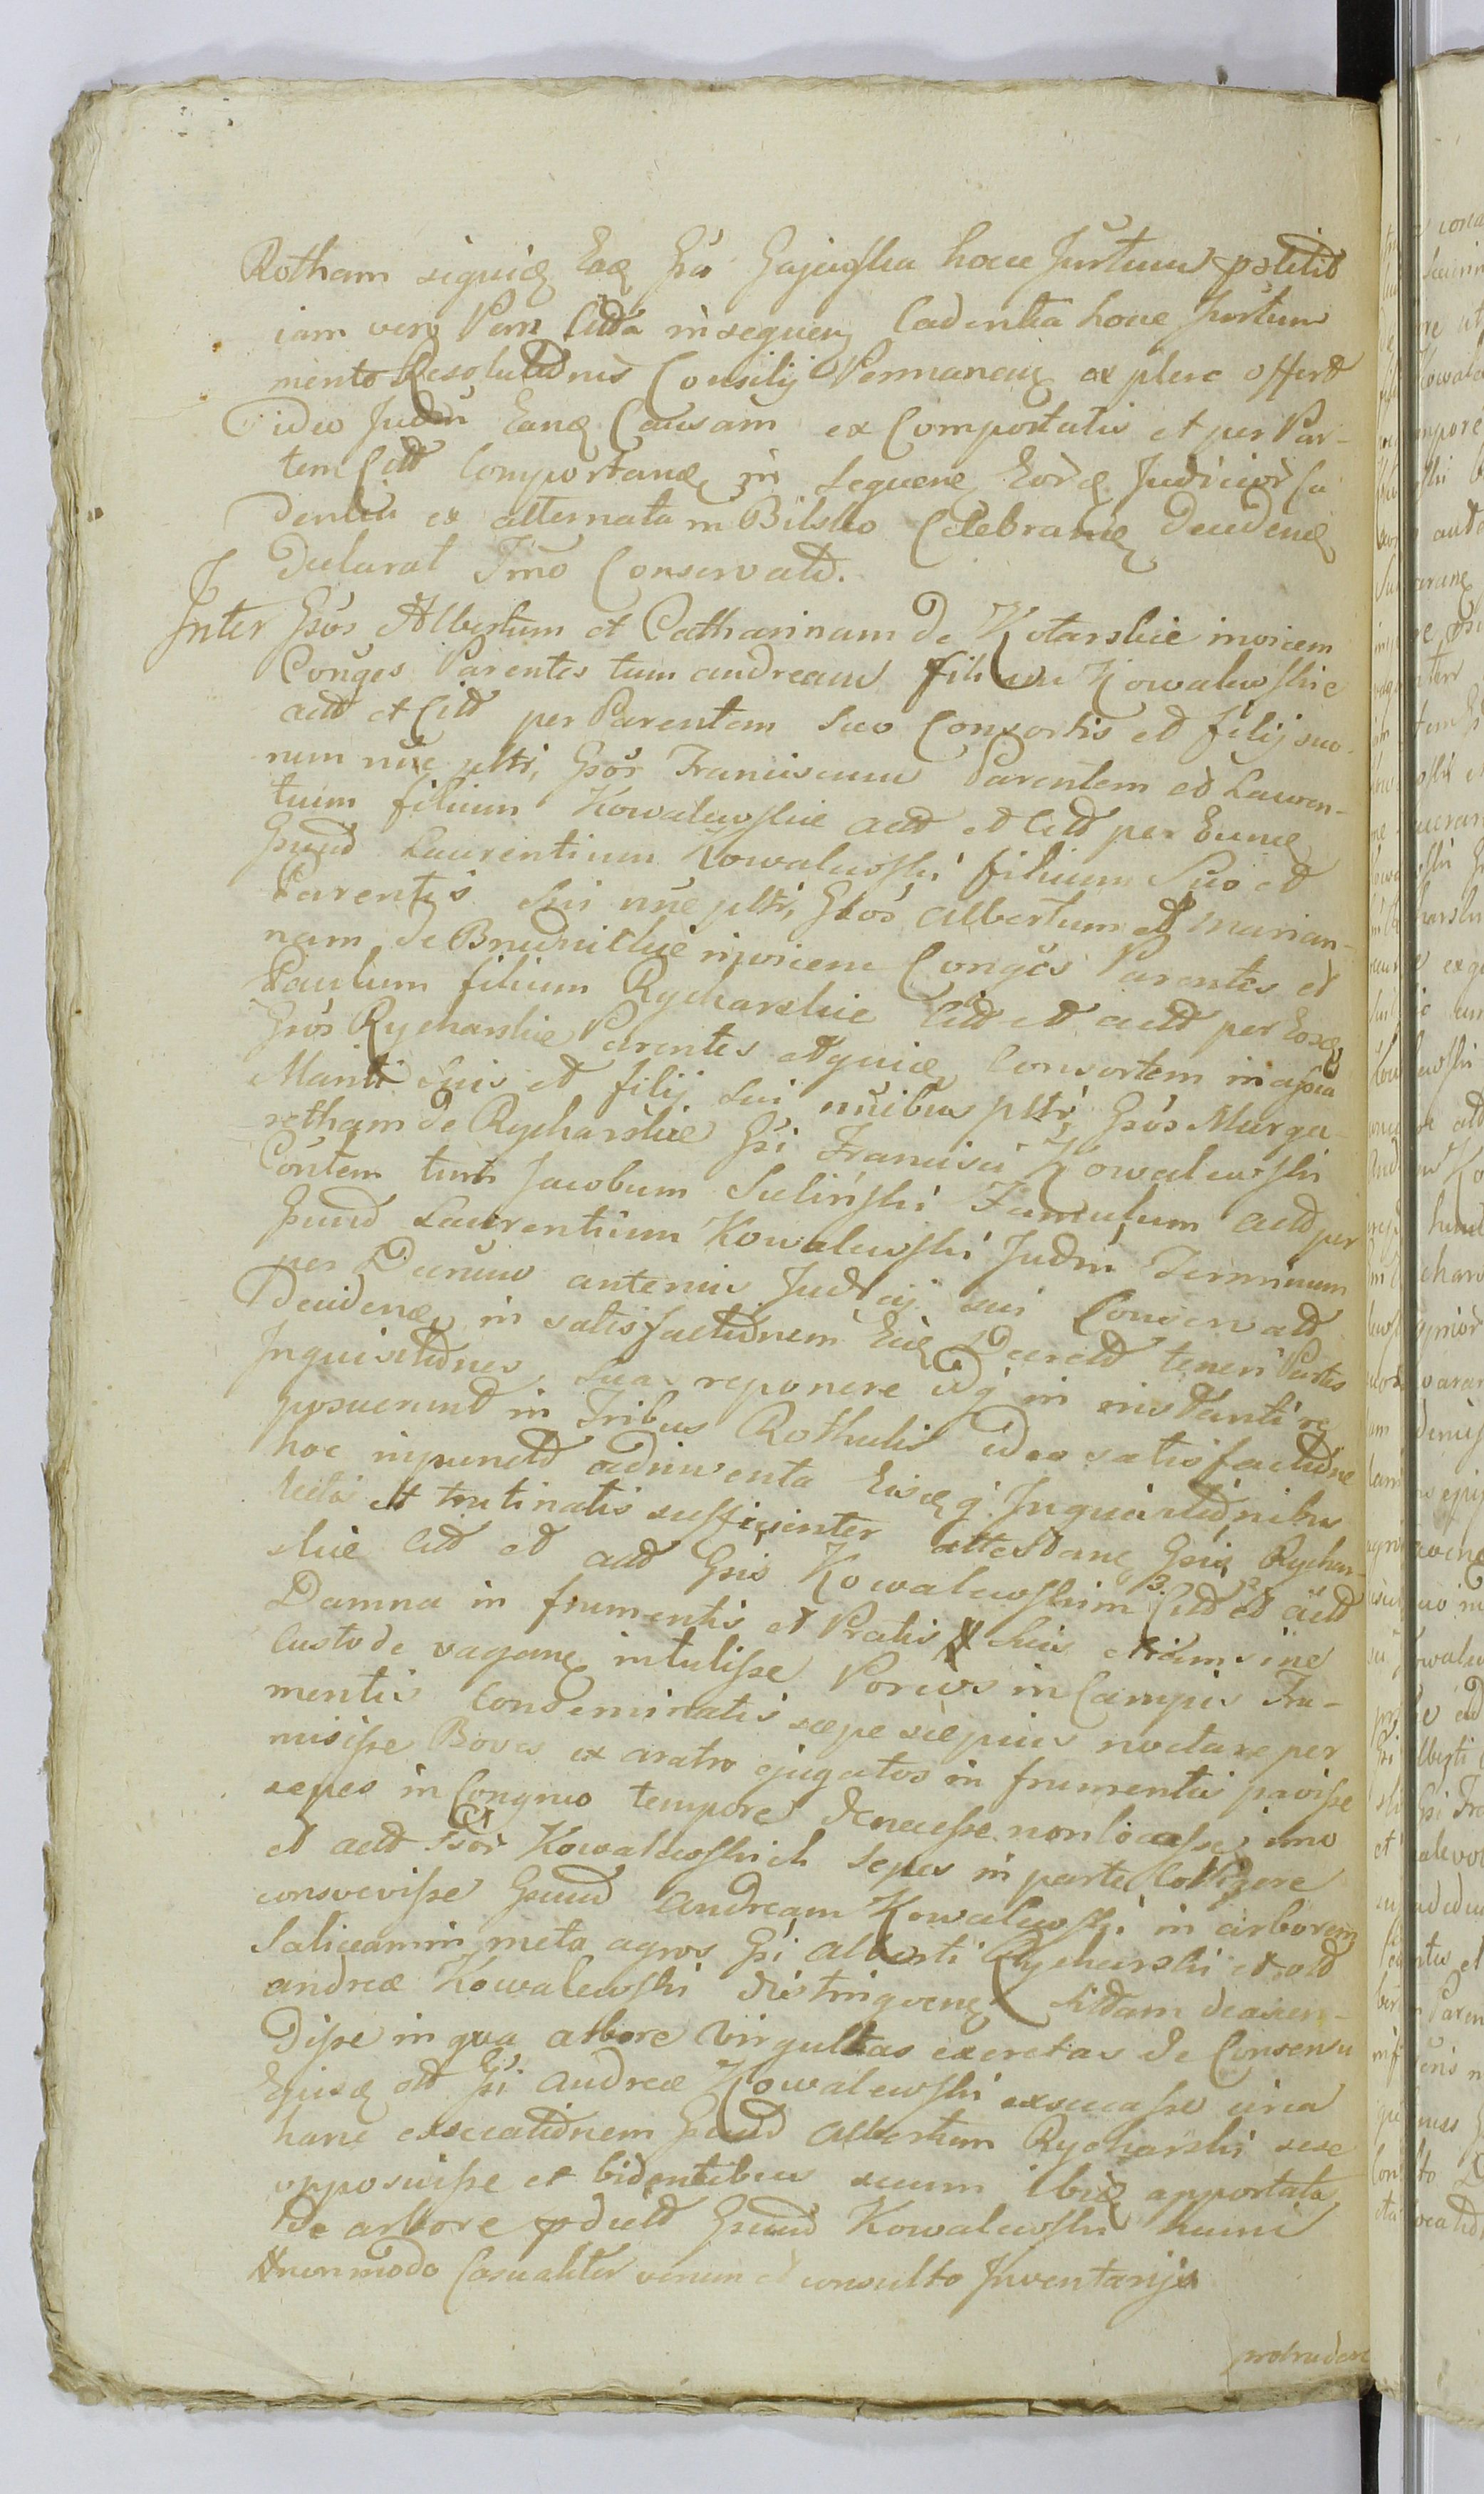 Rotham siquid Ead Gsa Gajewska hocce Jurtum pstitit
iam vero Pars Citta in sequen Cadentia hocce Jurtum
mento Resolutionis Consilij Permanen explere offert
ideo Judm Eand Causam ex Comportatis et per Par-
tem Citt Comportand in sequen Eord Judicior Ca
dentia ex alternata in Bilsko Celebrand Decidend
Declarat Tmo Conservato.
Inter Gsos Albertum et Catharinam de Kotarskie invicem
Conges Parentes tum andream filium Kowalewskie
actt et Citt per Parentem suo Consortis et filij suo-
rum nne pltr, Gsos Franciscum Parentem et Lauren-
tium filium Kowalewskie actt et Citt per Eund
Gsund Laurentium Kowalewski filium Suo et
Parentis sui nne pltr, Gsos Albertum et Marian-
nam de Brudnickie invicem Conges Parentes et
Paulum filium Rycharskie Citt et actt per Eosd
Gsos Rycharskie Parentes et quid Consortem in assia
Mariti sui et filij sui nnibus pltr, Gsos Marga-
retham de Rycharskie Gsi Francisci Kowalewski
Contem tum Jacobum Suliński Famulum actt per
Gsund Laurentium Kowalewski Judm Terminum
per Decrum anterius Judicij sui Conservatt
Decidend, in satisfactionem Eid Decreto teneri Partes
Inquisitiones suas reponere idq in instanti re
posuerunt in Tribus Rothulis ideo satisfactione
hoc in puncto adinventa Eisdq Inquisitionibus
lectis et trutinatis sufficienter attestand Gsis Rychar-
skie Citt et actt Gsis Kowalewskim Citt et actt
Damna in frumentis et Pratis suis etiam sine
Custode vagand intulisse Porcos in Campis Fru-
mentis Condeminatis sæpe sæpius noctare per
misisse Boves ex aratro ejugatos in frumentis pavisse
sepes in Congruo tempore denecesse non locasse imo
et actt Gsor Kowalewskich sepes in parte Colligere
consvevisse Gsund Andream Kowalewski in arborem
Saliceam in meta agros Gsi Alberti Rycharski et
andreæ Kowalewski distingvend sittam deascen-
disse in qva arbore Virgultas excretas de Consensu
Ejusd Gsi Andreæ Kowalewski exsecasse circa
hanc exsecationem Gsund Albertum Rycharski sese
opposuisse et bidentibus secum ibid apportatis
de arbore Gsund Kowalewski humi
non modo Casualiter verum et consulto Inventarijs
protrudere